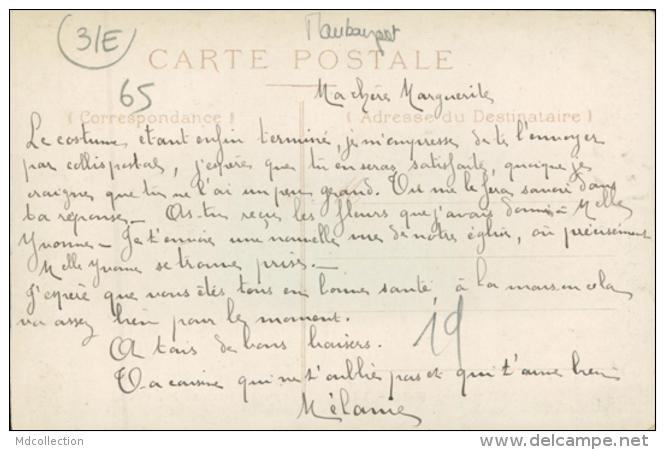 31E
Maubourguet
CARTE POSTALE
65
Ma chère Marguerite
( Correspondance )
( Adresse du Destinataire )
Le costume, étant enfin terminé, je m'empresse de te l'envoyer
par collis postal, j'espère que tu en seras satisfaite, quoique je
craignes que tu ne l'ai un peu grand. Tu me le feras savoir dans
ta réponse. - As-tu reçu les fleurs que j'avais donné à Melle
Yvonne - Je t'envoie une nouvelle vue de notre église, où précisément
Melle Yvonne se trouve prise. -
J'espère que vous êtes tous en bonne santé, à la maison cela
va assez bien pour le moment.
19
A tous de bons baisers.
Ta cousine qui ne t'oublie pas et qui t'aime bien
Mélanie
Mdcollection
www.delcampe.net